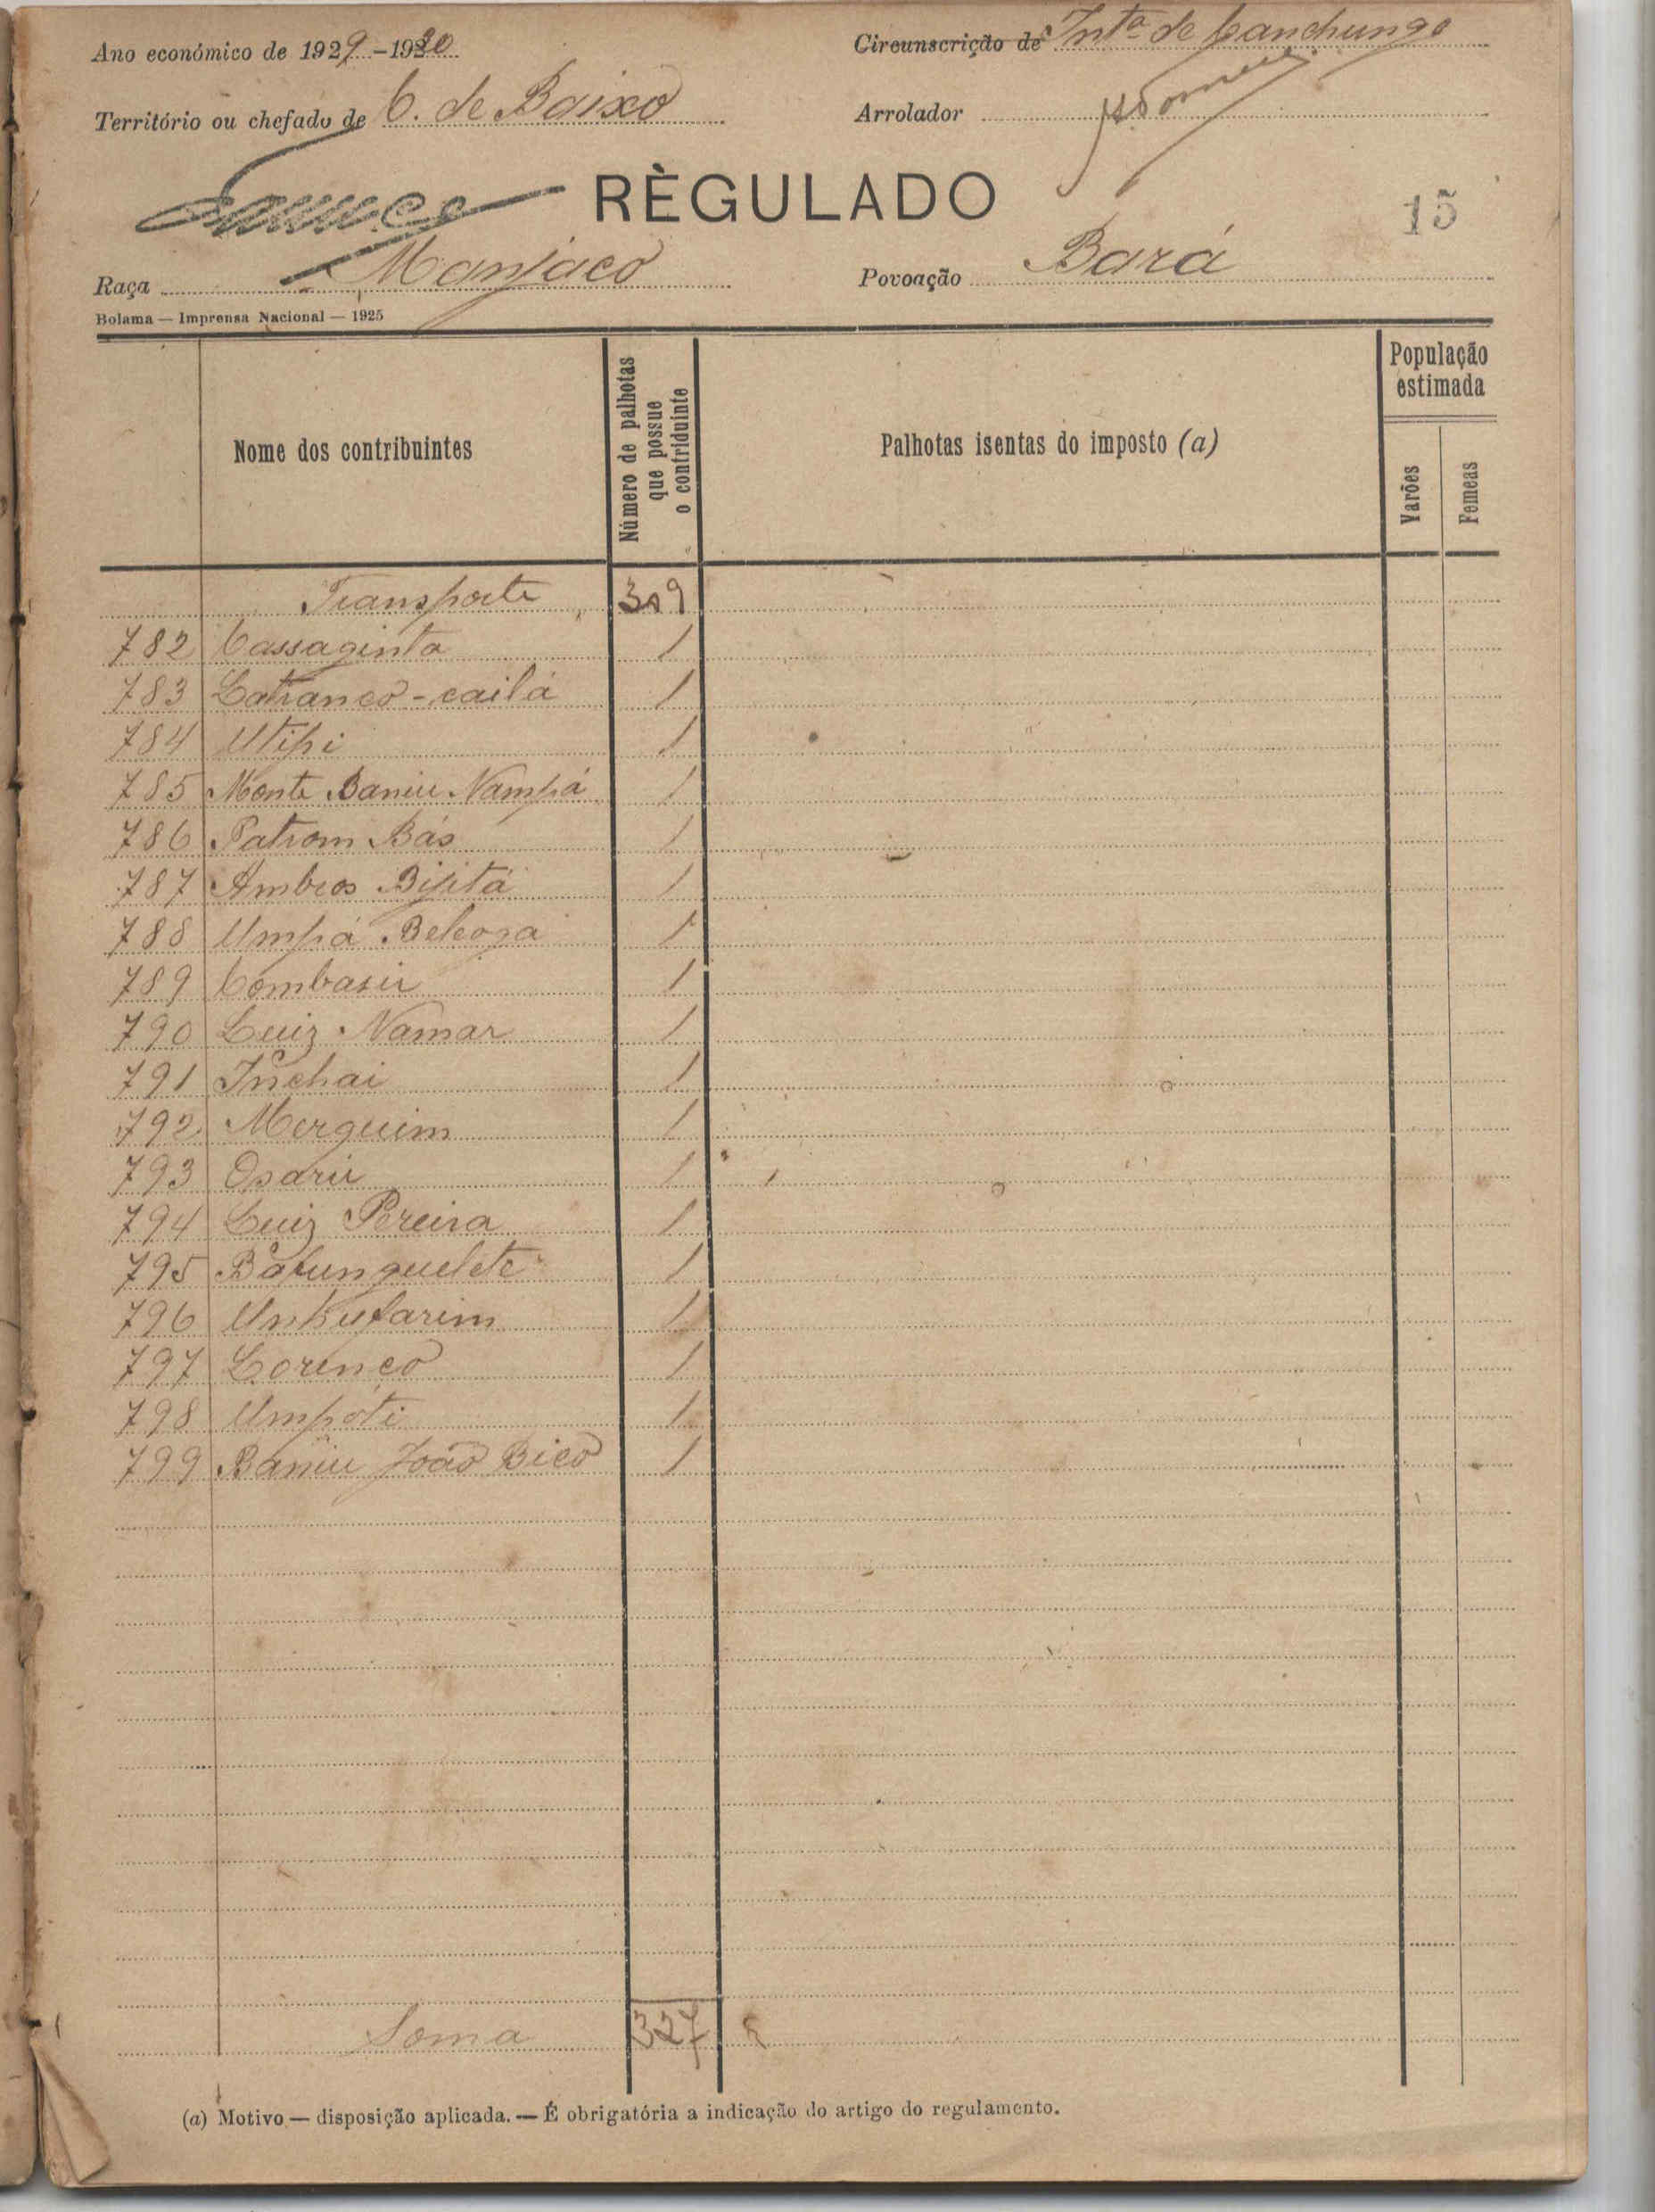 Ano económico de 1929-1930 Circunscrição de Intª de Canchungo
Território ou chefado de C. de Baixo Arrolador
RÈGULADO
15
Raça Manjaco Povoação Bará
Bolama — Imprensa Nacional — 1925
Nome dos contribuintes
Número de palhotas
que possue
o contriduinte
Palhotas isentas do imposto (a)
População
estimada
Varões
Femeas
Transporte 309
782 Cassaginta 1
783 Catranco-cailá 1
784 Utipi 1
785 Monte Baniu Nampá 1
786 Patrom Bás 1
787 Ambros Bijitá 1
788 Umpá Beleoga 1
789 Combasiu 1
790 Luiz Namar 1
791 Inchai 1
792 Merquim 1
793 Osariu 1
794 Luiz Pereira 1
795 Batunguelete 1
796 UnKufarim 1
797 Lorenço 1
798 Umpoti 1
799 Baniu João Bico 1
Soma 327
(a) Motivo — disposição aplicada. — É obrigatória a indicação do artigo do regulamento.